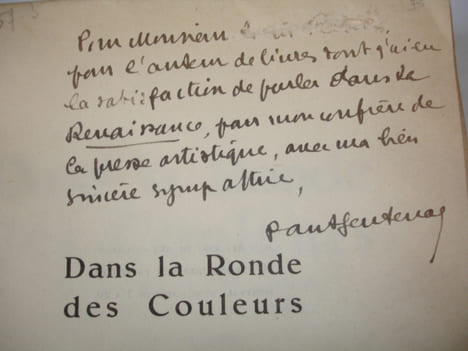 Pour Monsieur
pour l'auteur de livres dont j'ai eu
la satisfaction de parler dans la
Renaissance, pour mon confrère de
la presse artistique, avec ma bien
sincère sympathie,
Paul Sentenac
Dans la Ronde
des Couleurs